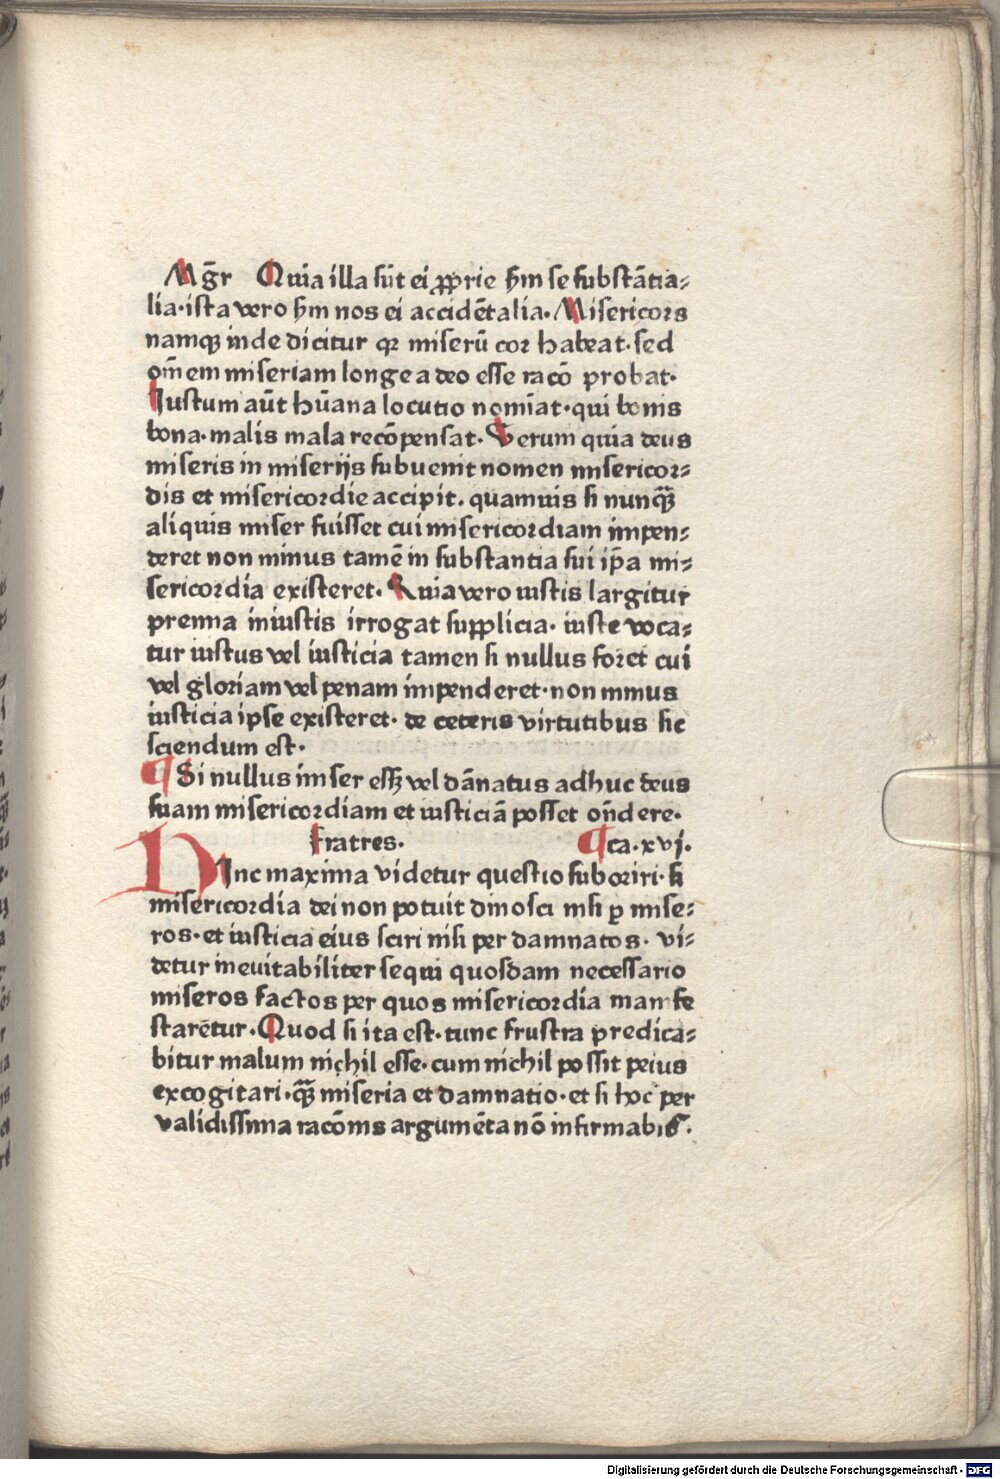 Mḡr Quia illa sūt ei ꝓprie ẜm se substātia⸗
lia·ista vero ẜm nos ei accidētalia. Misericors
namqꝫ inde dicitur qꝛ miserū cor habeat·sed
om̄em miseriam longe a deo esse racō probat·
Iustum aūt hūana locutio nomīat·qui bonis
bona·malis mala recōpensat. Verum quia deus
miseris in miserijs subuenit nomen misericor⸗
dis et misericordie accipit. quamuis si nunqꝫ̄
aliquis miser fuisset cui misericordiam impen⸗
deret non minus tamē in substantia sui ip̄a mi⸗
sericordia existeret. Quia vero iustis largitur
premia iniustis irrogat supplicia. iuste voca⸗
tur iustus vel iusticia tamen si nullus foret cui
vel gloriam vel penam impenderet·non minus
iusticia ipse existeret. de ceteris virtutibus sic
sciendum est.
¶ Si nullus miser essꝫ vel dānatus adhuc deus
suam misericordiam et iusticiā posset on̄dere.
fratres. ¶ ca.xvj.
HInc maxima videtur questio suboriri·si
misericordia dei non potuit dinosci nisi ꝑ mise⸗
ros·et iusticia eius sciri nisi per damnatos. vi⸗
detur ineuitabiliter sequi quosdam necessario
miseros factos per quos misericordia manife
starētur. Quod si ita est·tunc frustra predica⸗
bitur malum nichil esse·cum nichil possit peius
excogitari·qꝫ̄ miseria et damnatio·et si hoc per
validissima racōnis argumēta nō infirmabiť.
Digitalisierung gefördert durch die Deutsche Forschungsgemeinschaft · DFG